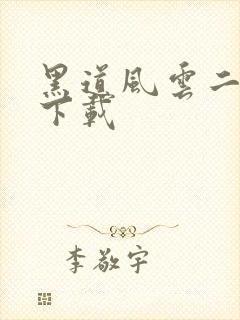 黑道風雲二
下載
李敬宇